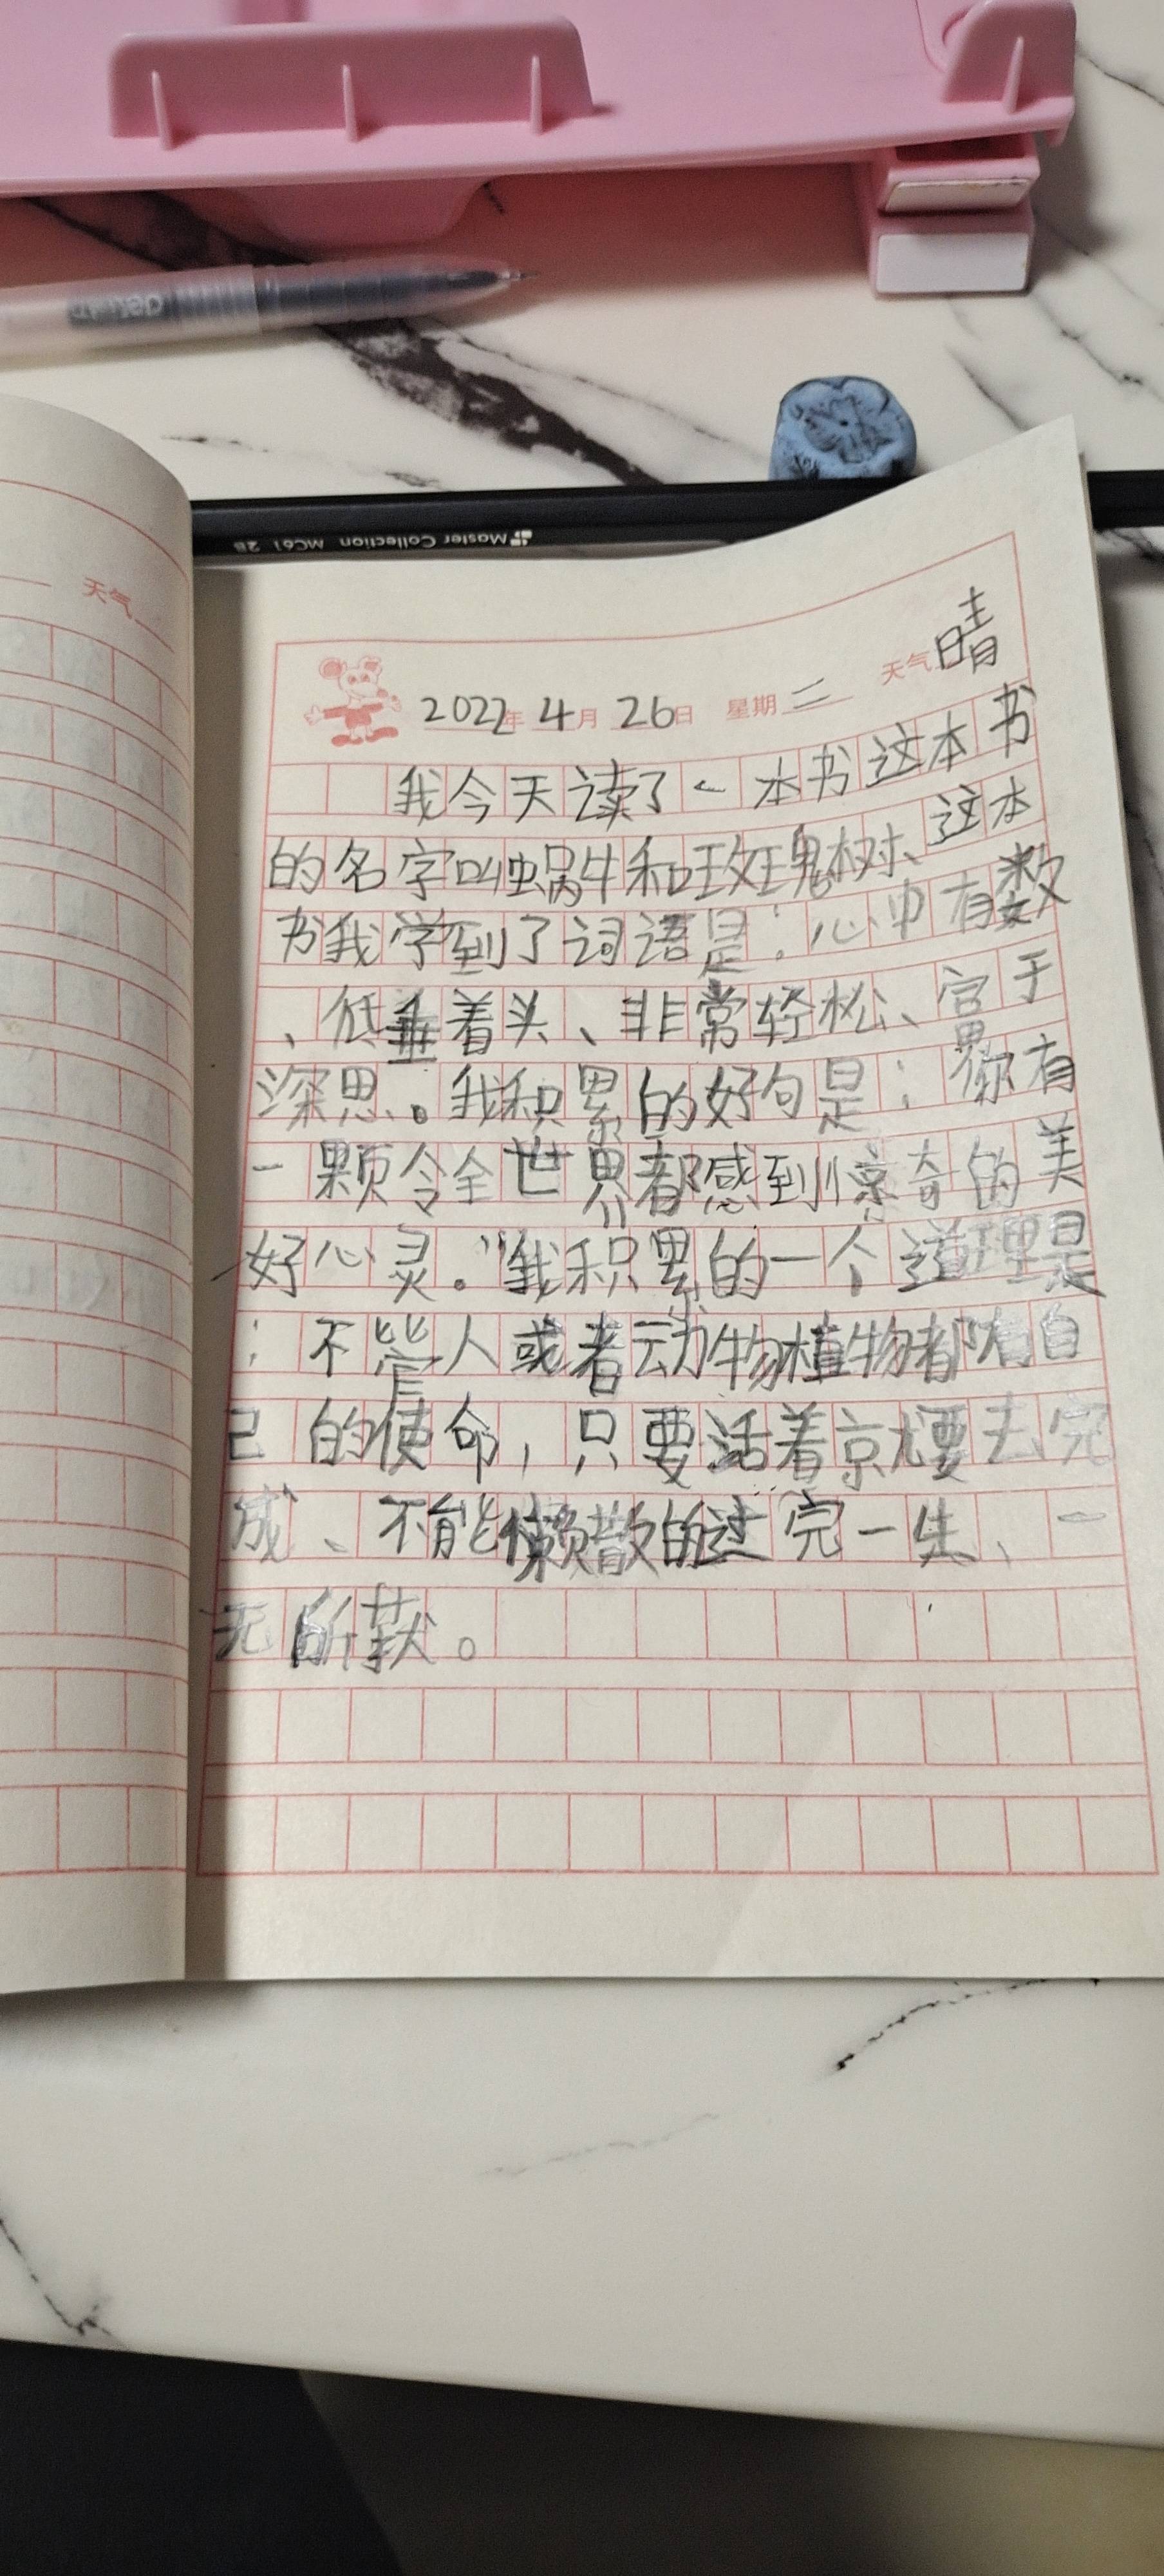 deli
Master Collection MC61 2B
天气
2022年 4月 26日 星期二 天气晴
我今天读了一本书这本书
的名字叫蜗牛和玫瑰树、这本
书我学到了词语是：心中有数
、低垂着头、非常轻松、富于
深思。我积累的好句是：你有
一颗令全世界都感到惊奇的美
好心灵。"我积累的一个道理是
：不管人或者动物植物都有自
己的使命，只要活着就要去完
成、不能懒散的过完一生、一
无所获。